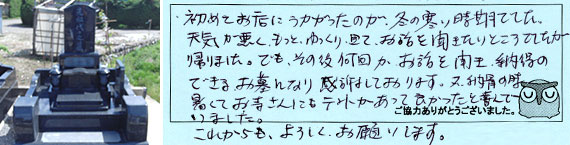 初めてお店にうかがったのが、冬の寒い時期でした。
天気が悪く、もっと、ゆっくり見て、お話を聞きたいところでしたが
帰りました。でも、その後何回か、お話を聞き、納得の
できるお墓になり感謝しております。又、納骨の時
暑くてお寺さんにもテントがあってよかったと喜んで
いました。
これからも、よろしくお願いします。
ご協力ありがとうございました。